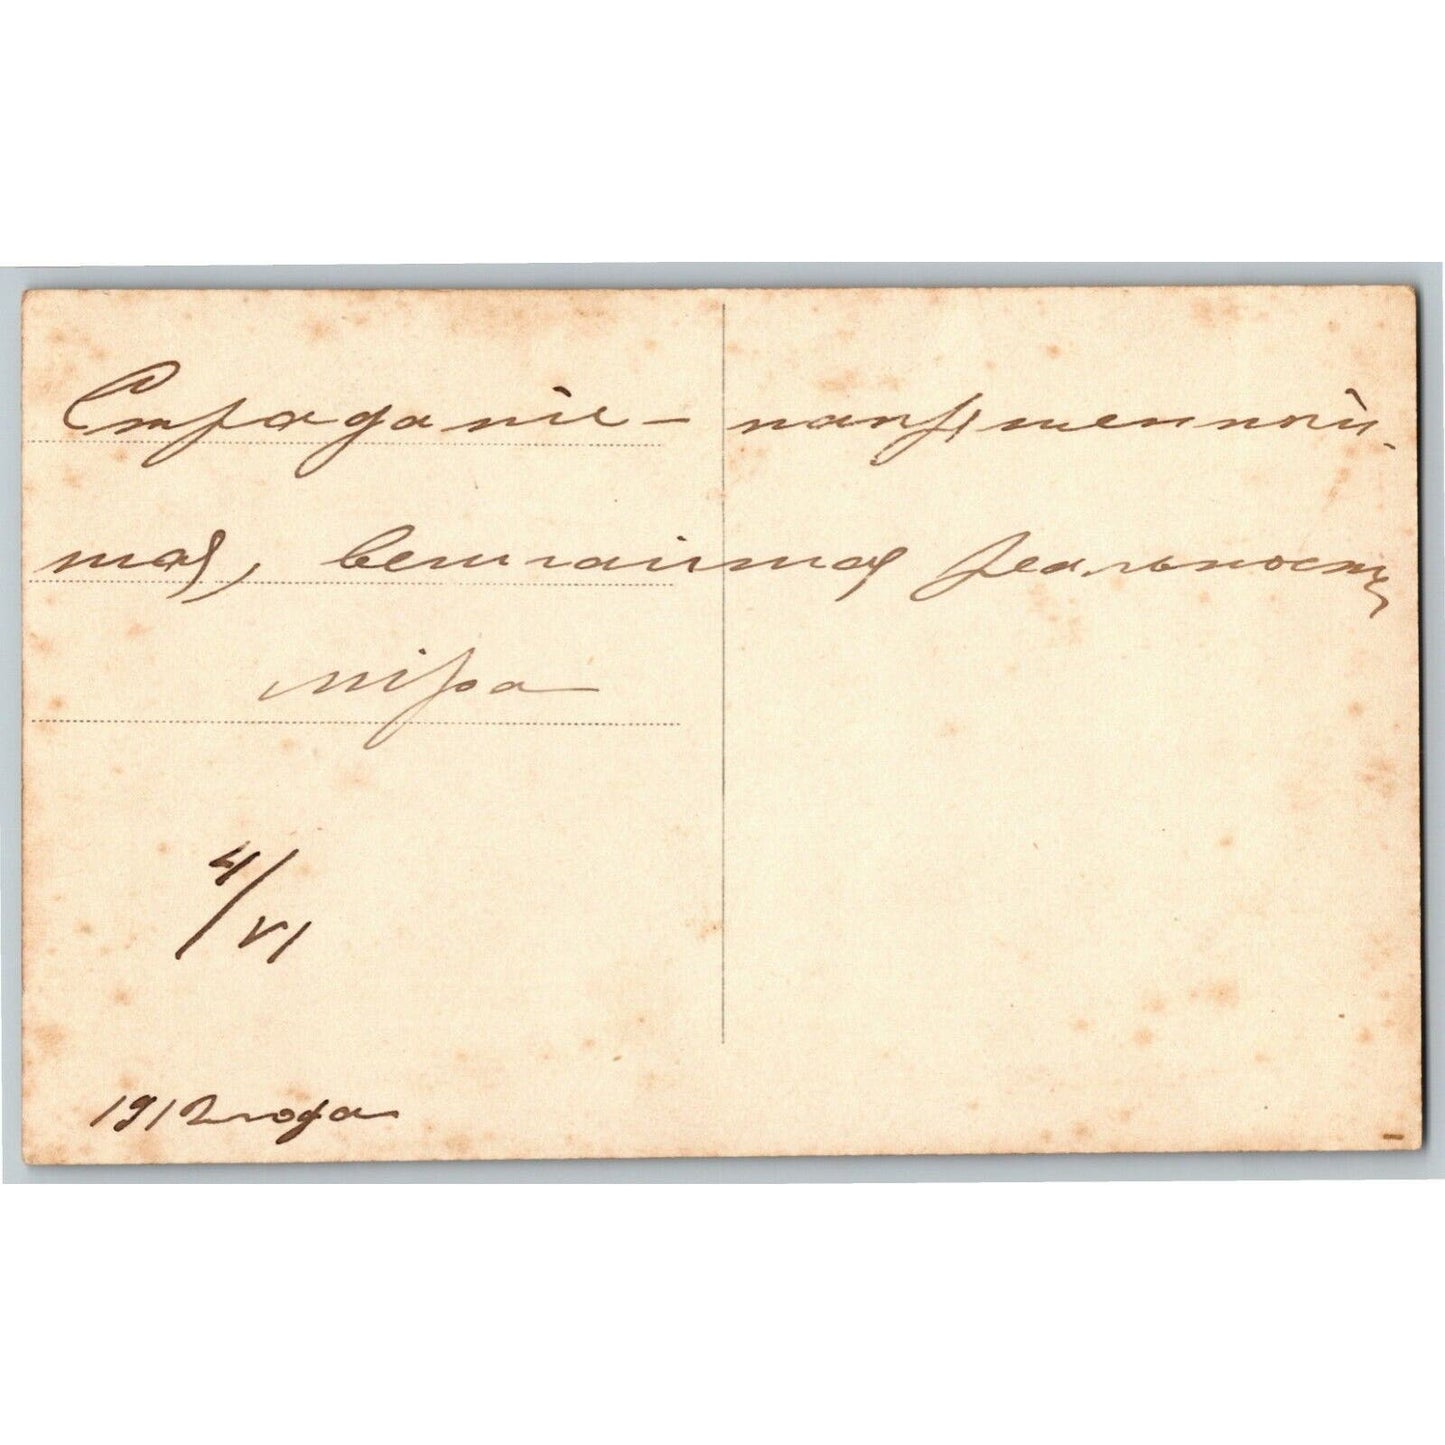 Страданiе – напряженнѣй-
шая, величайшая реальность
мiра
4/VI
1912 года